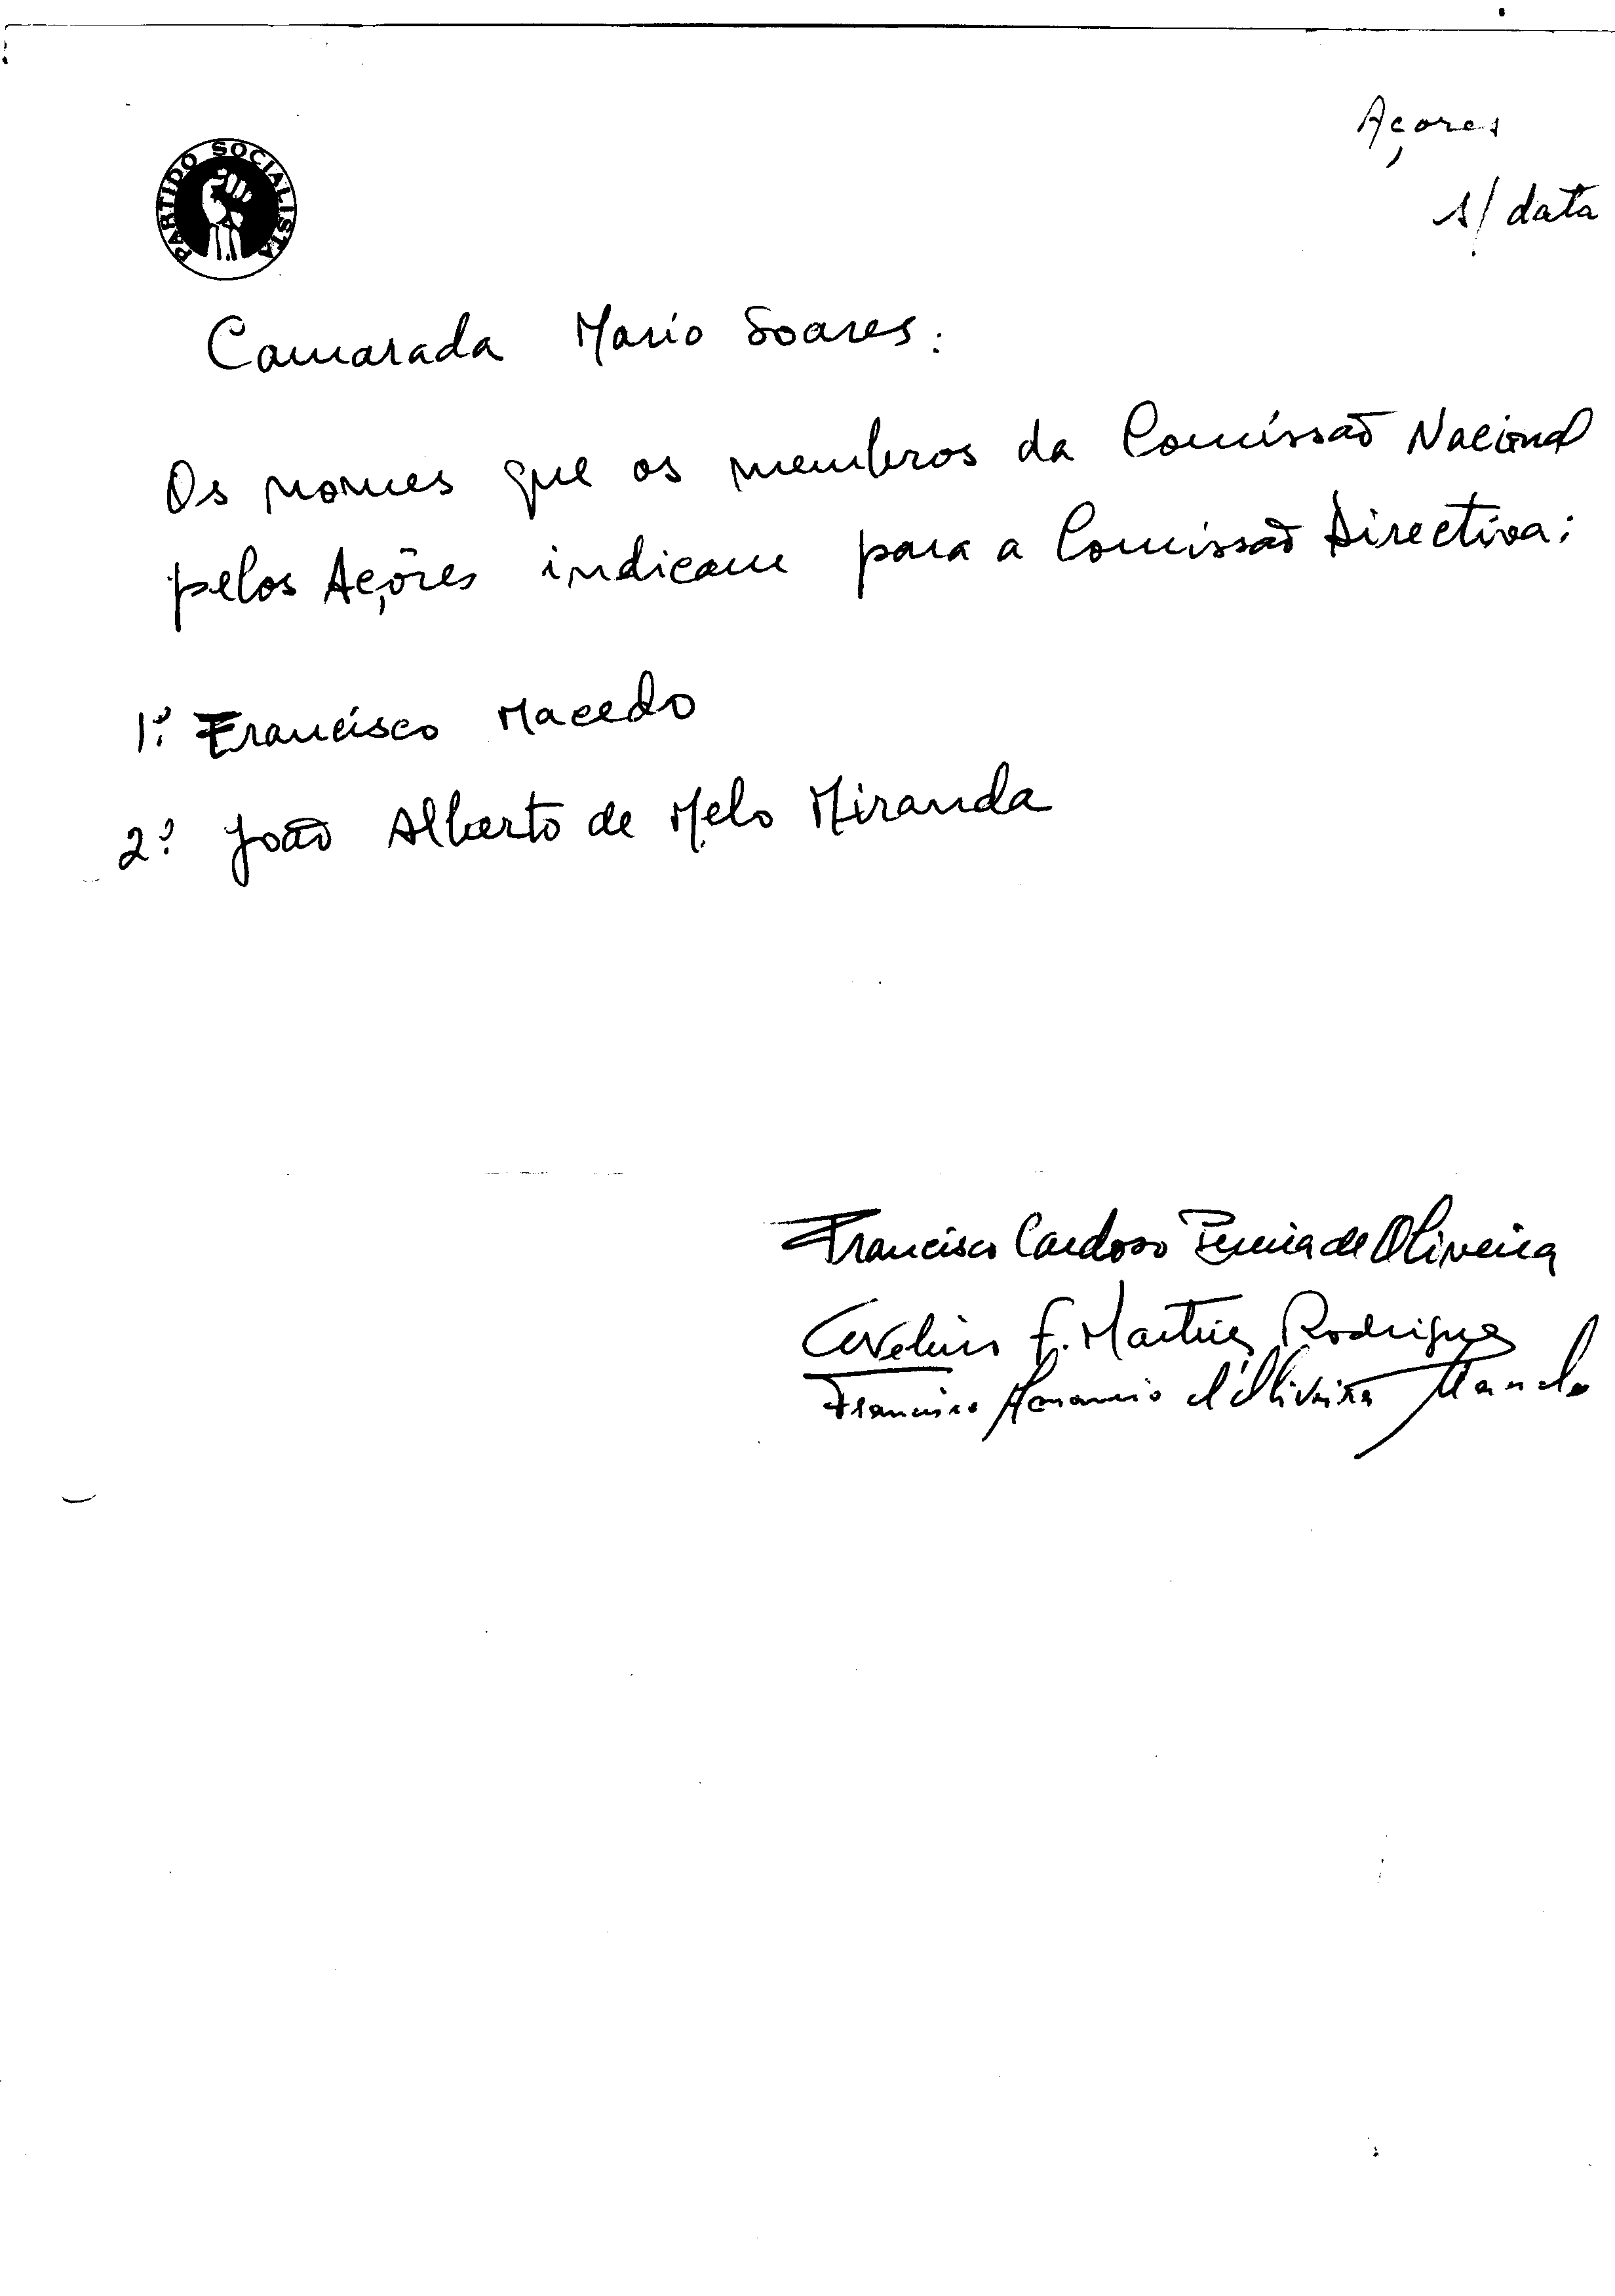 Açores
s/ data
PARTIDO SOCIALISTA
Camarada Mario Soares:
Os nomes que os membros da Comissão Nacional
pelos Açôres indicam para a Comissão Directiva:
1º. Francisco Macedo
2º. João Alberto de Melo Miranda
Francisco Cardoso Pereira de Oliveira
Avelino F. Martins Rodrigues
Francisco d'Oliveira